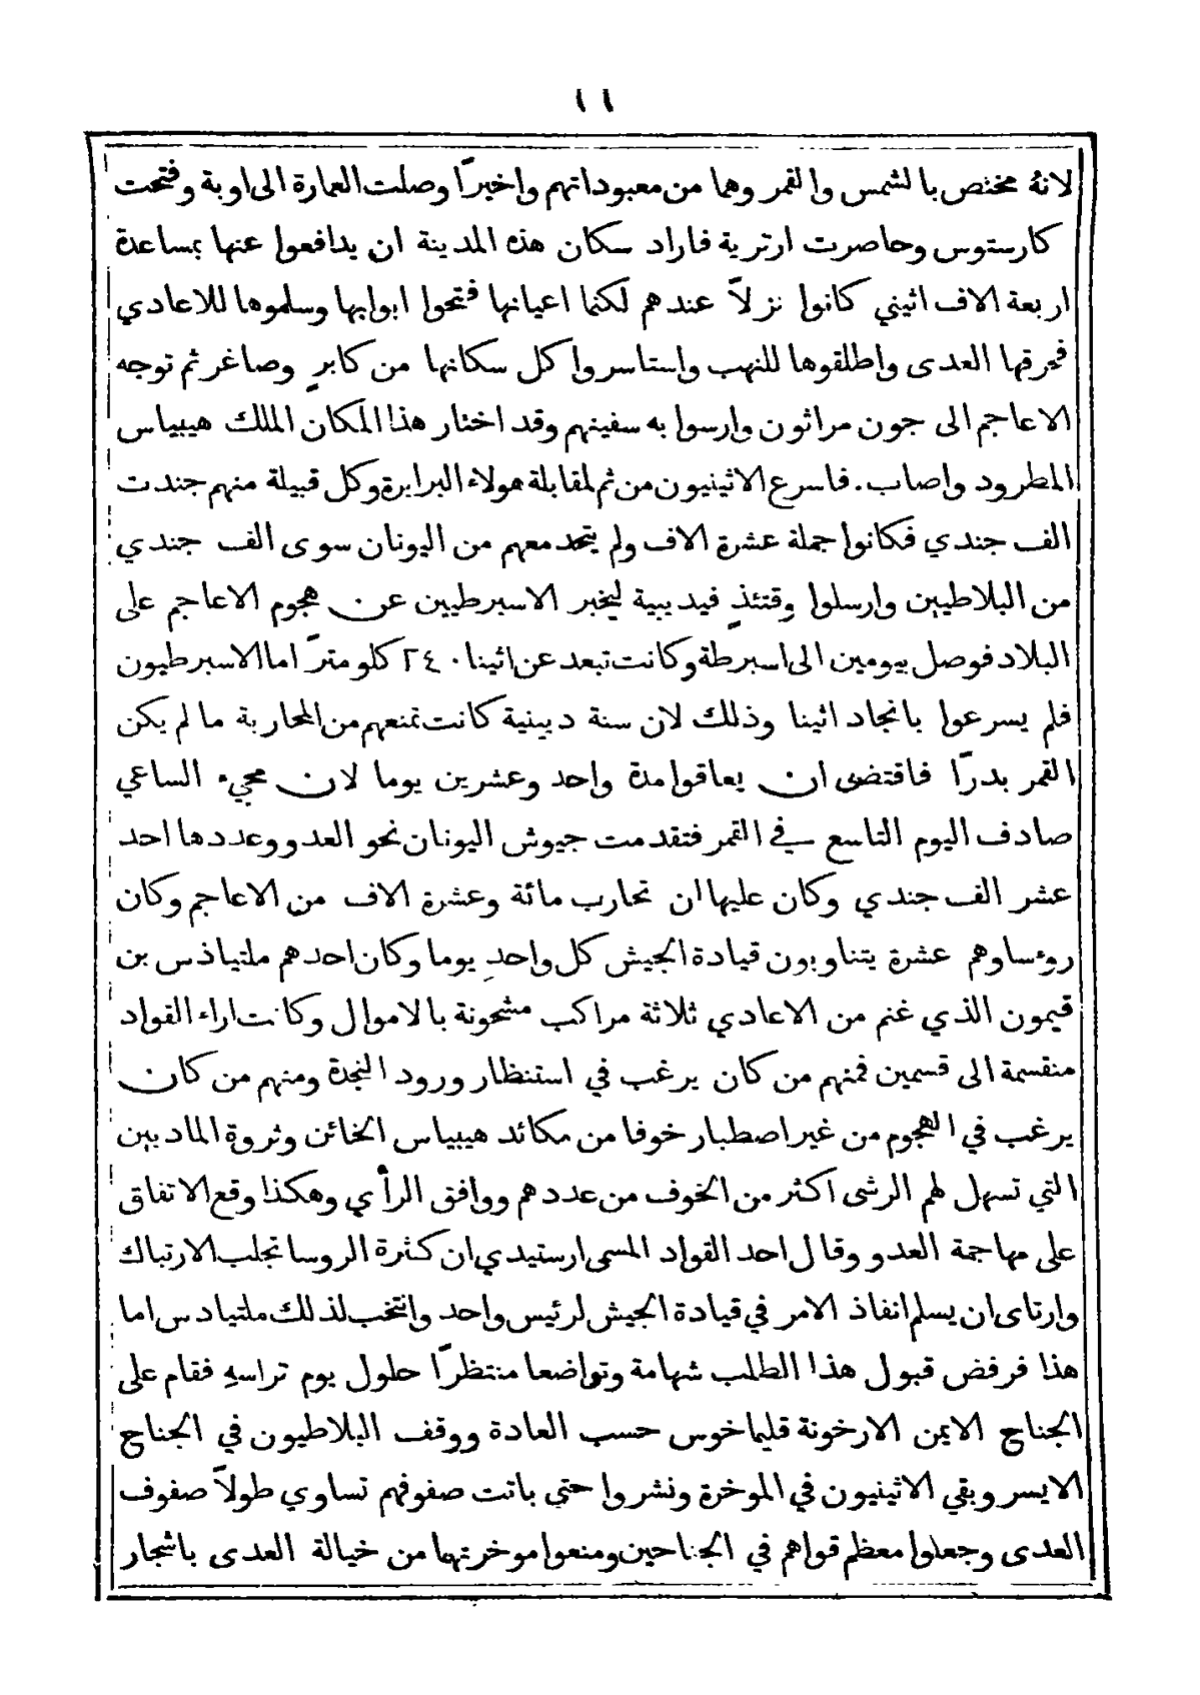 ١١
لانهُ مختص بالشمس والقمر وهما من معبوداتهم واخيرًا وصلت العمارة الى اوبة وفتحت
كارستوس وحاصرت ارترية فاراد سكان هذه المدينة ان يدافعوا عنها بمساعدة
اربعة الاف اثيني كانوا نزلاً عندهم لكنما اعيانها فتحوا ابوابها وسلموها للاعادي
فحرقها العدى واطلقوها للنهب واستاسروا كل سكانها من كابرٍ وصاغر ثم توجه
الاعاجم الى جون مراثون وارسوا به سفينهم وقد اختار هذا المكان الملك هيبياس
المطرود واصاب. فاسرع الاثينيون من ثم لمقابلة هولاء البرابرة وكل قبيلة منهم جندت
الف جندي فكانوا جملة عشرة الاف ولم يتحد معهم من اليونان سوى الف جندي
من البلاطيين وارسلوا وقتئذٍ فيديبية ليخبر الاسبرطيين عن هجوم الاعاجم على
البلاد فوصل بيومين الى اسبرطة وكانت تبعد عن اثينا ٢٤٠ كلومترًا اما الاسبرطيون
فلم يسرعوا بانجاد اثينا وذلك لان سنة دينية كانت تمنعهم من المحاربة ما لم يكن
القمر بدرًا فاقتضى ان يعاقوا مدة واحد وعشرين يوما لان مجيء الساعي
صادف اليوم التاسع في القمر فتقدمت جيوش اليونان نحو العدو وعددها احد
عشر الف جندي وكان عليها ان تحارب مائة وعشرة الاف من الاعاجم وكان
روءساوهم عشرة يتناوبون قيادة الجيش كل واحدٍ يوما وكان احدهم ملتياذس بن
قيمون الذي غنم من الاعادي ثلاثة مراكب مشحونة بالاموال وكانت اراء القواد
منقسمة الى قسمين فمنهم من كان يرغب في استنظار ورود النجدة ومنهم من كان
يرغب في الهجوم من غير اصطبار خوفا من مكائد هيبياس الخائن وثروة الماديين
التي تسهل لهم الرشى اكثر من الخوف من عددهم ووافق الرأي وهكذا وقع الاتفاق
على مهاجمة العدو وقال احد القواد المسمى ارستيدي ان كثرة الروسا تجلب الارتباك
وارتاى ان يسلم انفاذ الامر في قيادة الجيش لرئيس واحد وانتخب لذلك ملتيادس اما
هذا فرفض قبول هذا الطلب شهامة وتواضعا منتظرًا حلول يوم تراسهِ فقام على
الجناح الايمن الارخونة قليماخوس حسب العادة ووقف البلاطيون في الجناح
الايسر وبقي الاثينيون في الموخرة ونشروا حتي باتت صفوفهم تساوي طولاً صفوف
العدى وجعلوا معظم قواهم في الجناحين ومنعوا موخرتهما من خيالة العدى باشجار